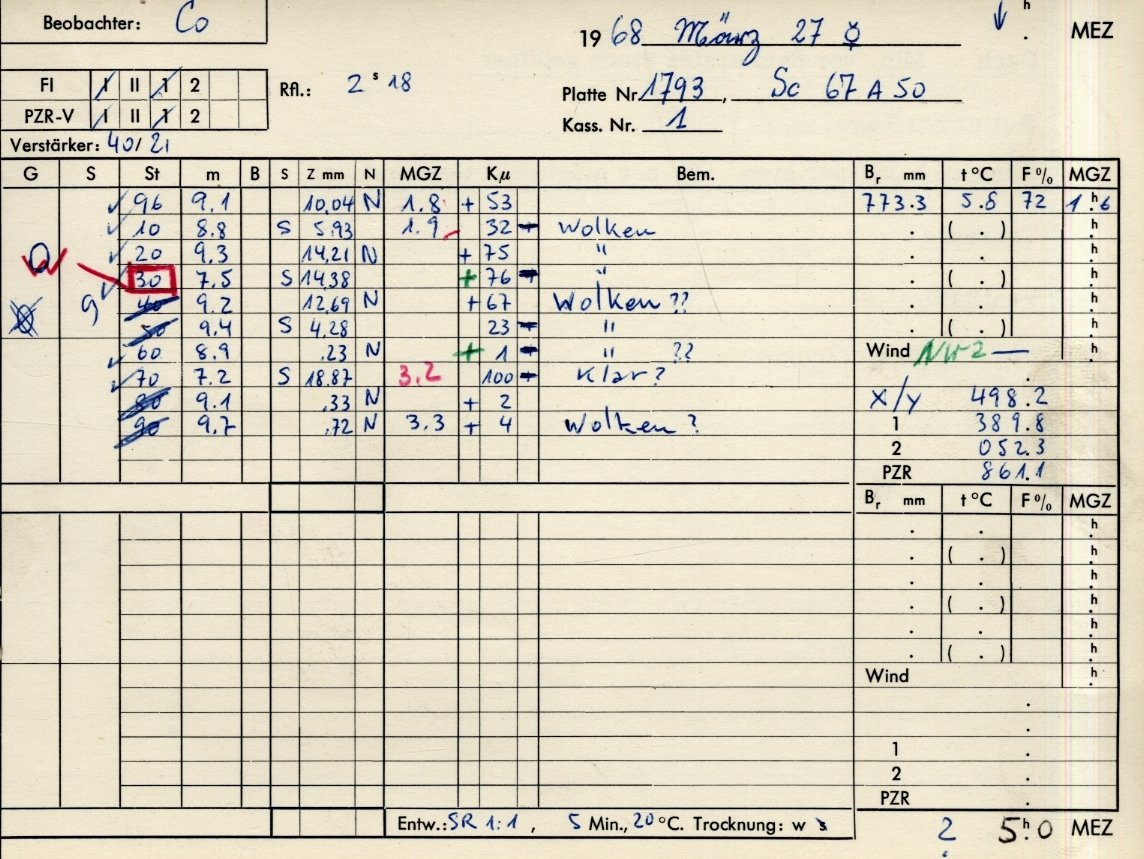 Beobachter: Co
1968 März 27 ☿ ↓ h . MEZ
FI I II 1 2 Rfl.: 2 s 18
Platte Nr. 1793, Sc 67 A 50
PZR-V I II 1 2
Kass. Nr. 1
Verstärker: 40/21
G S St m B S Z mm N MGZ Kμ Bem. Br mm t °C F % MGZ
✓ 96 9.1 10,04 N 1.8 + 53 773.3 5.8 72 1 h.6
✓ 10 8.8 S 5,93 1.9 32 - Wolken . ( . ) h.
✓ 20 9.3 14,21 N + 75 " . . h.
✓ 30 7.5 S 14,38 + 76 - " . ( . ) h.
40 9.2 12,69 N + 67 Wolken ?? . . h.
50 9.4 S 4,28 23 - " . ( . ) h.
✓ 60 8.9 ,23 N + 1 - " ?? Wind NW 2 — h.
✓ 70 7.2 S 18,87 3.2 100 - Klar? .
80 9.1 ,33 N + 2 X/Y 498.2
90 9.7 ,72 N 3.3 + 4 Wolken ? 1 389.8
2 052.3
PZR 861.1
Br mm t °C F % MGZ
. . h.
. ( . ) h.
. . h.
. ( . ) h.
. . h.
. ( . ) h.
Wind h.
.
.
1 .
2 .
PZR .
Entw.: SR 1:1, 5 Min., 20 °C. Trocknung: w s 2 5 h.0 MEZ